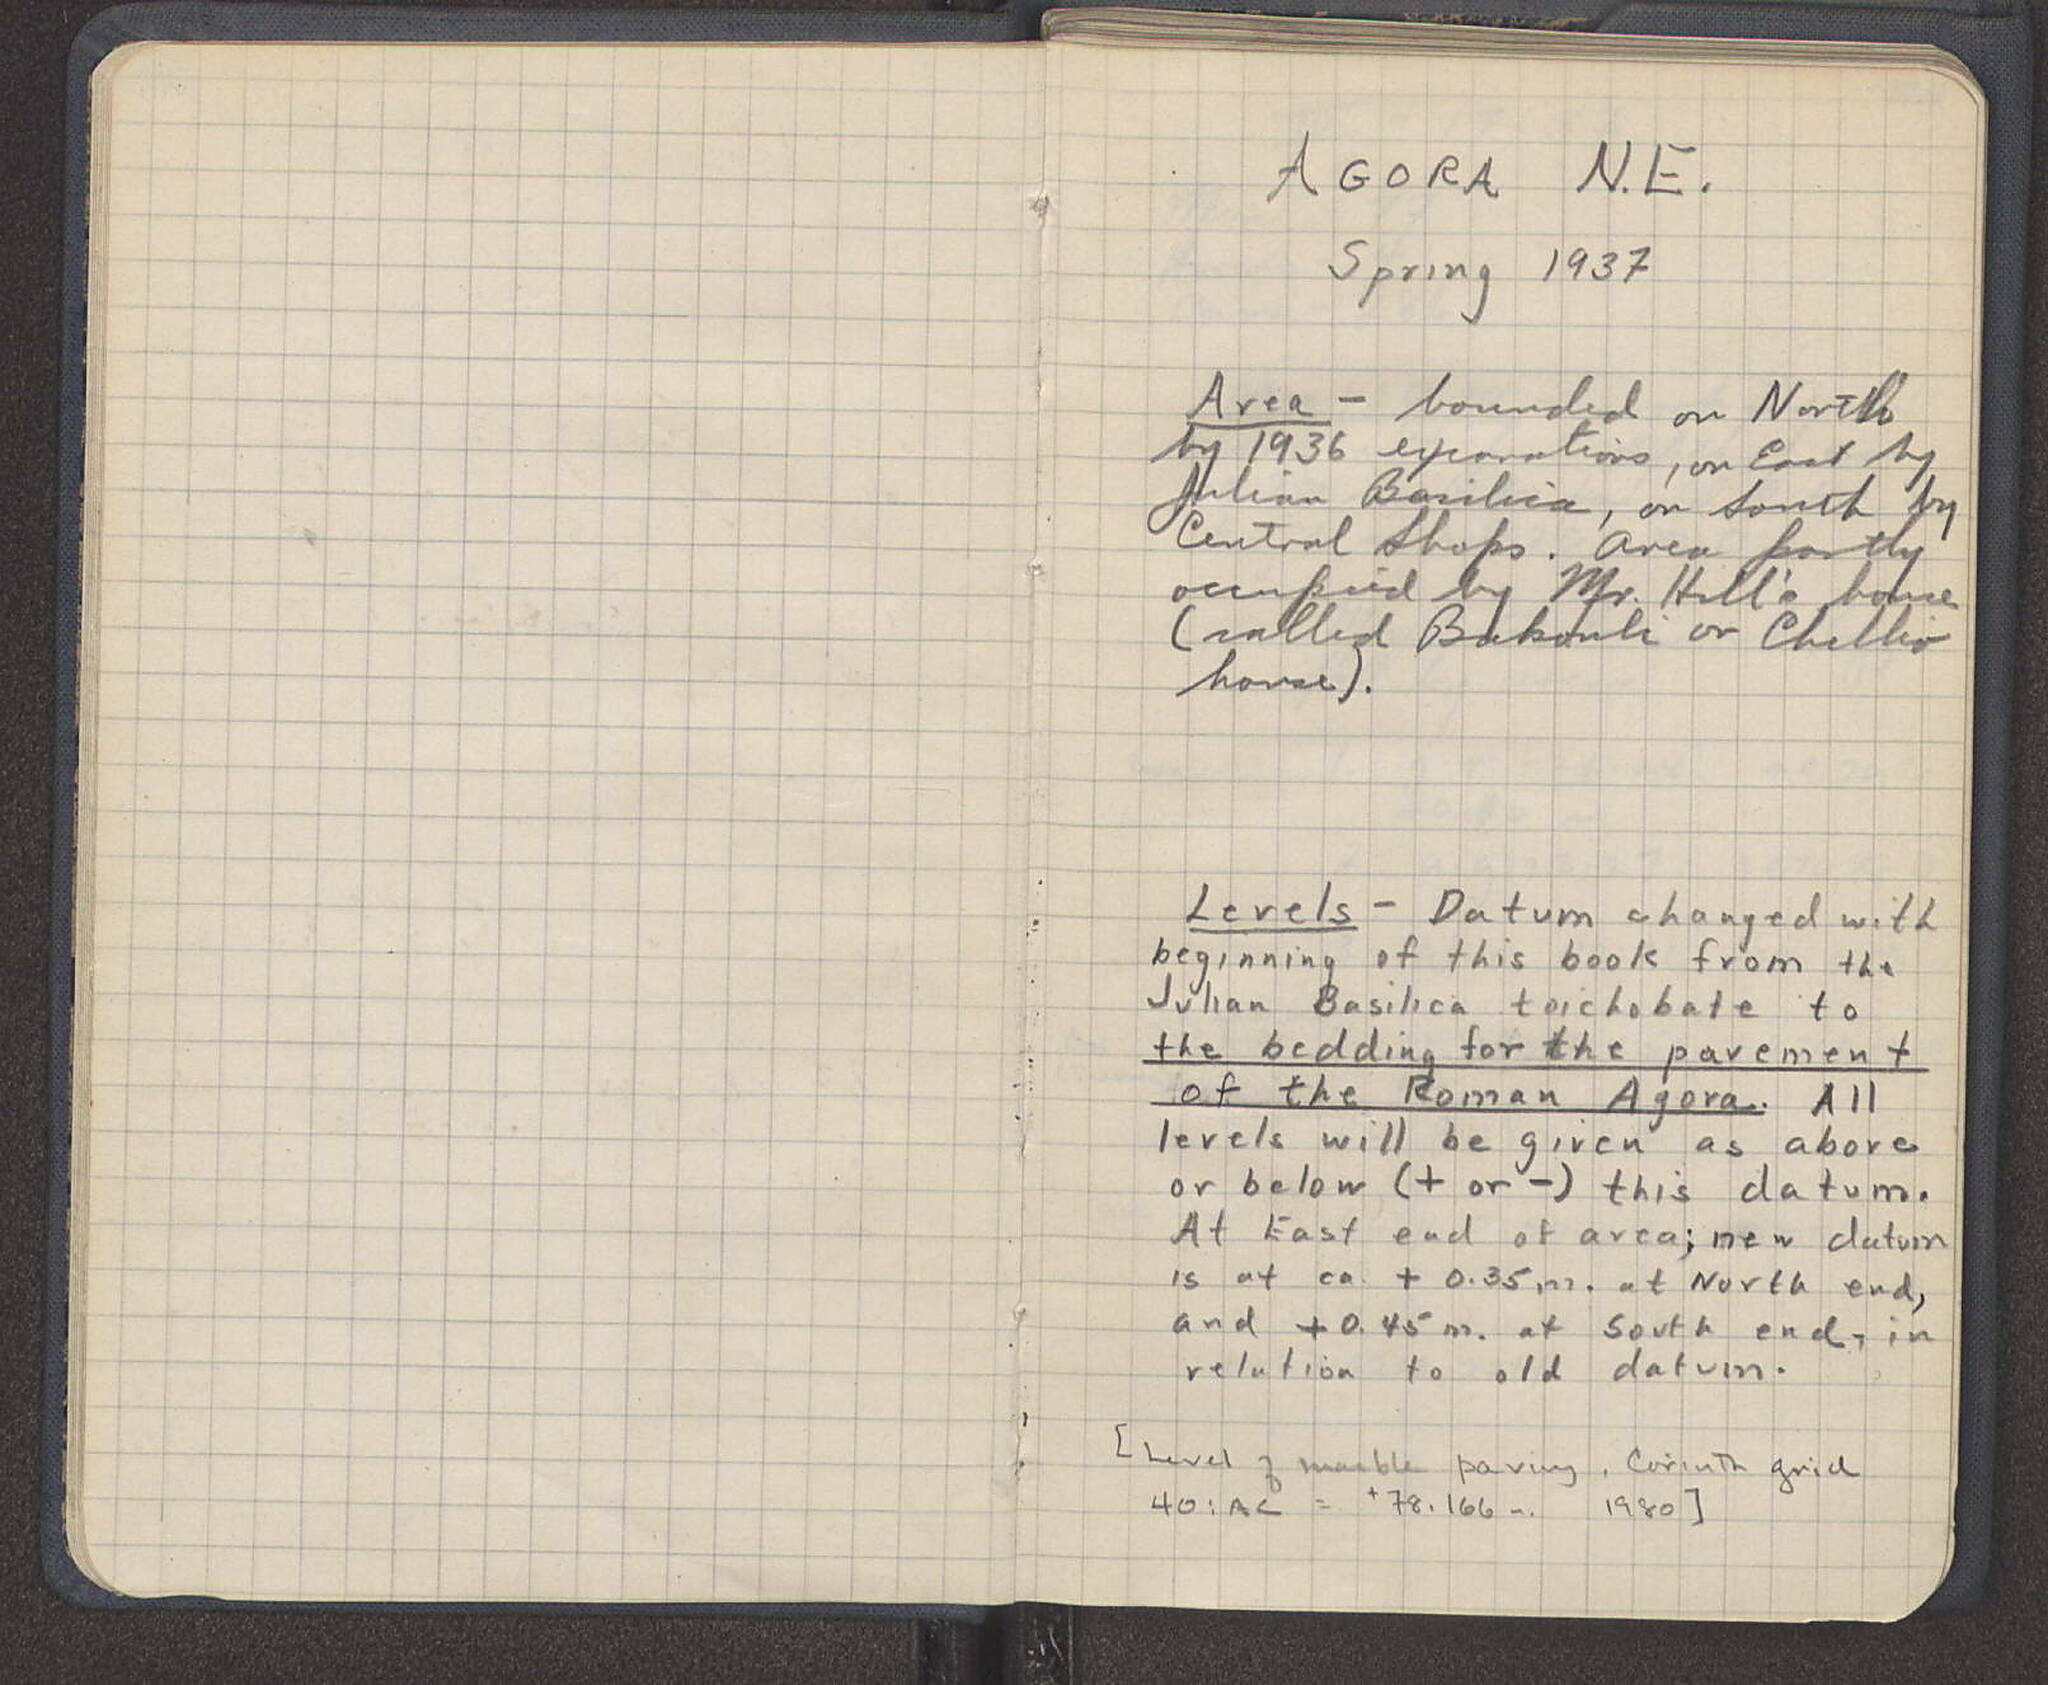 AGORA N.E.
Spring 1937
Area - bounded on North
by 1936 excavations, on East by
Julian Basilica, on South by
Central Shops. Area partly
occupied by Mr. Hill's house
(called Bakouli or Chellio
house).
Levels - Datum changed with
beginning of this book from the
Julian Basilica toichobate to
the bedding for the pavement
of the Roman Agora. All
levels will be given as above
or below (+ or -) this datum.
At East end of area; new datum
is at ca. + 0.35 m. at North end,
and +0.45 m. at South end, in
relation to old datum.
[Level of marble paving, Corinth grid
40:AC = +78.166 m. 1980]